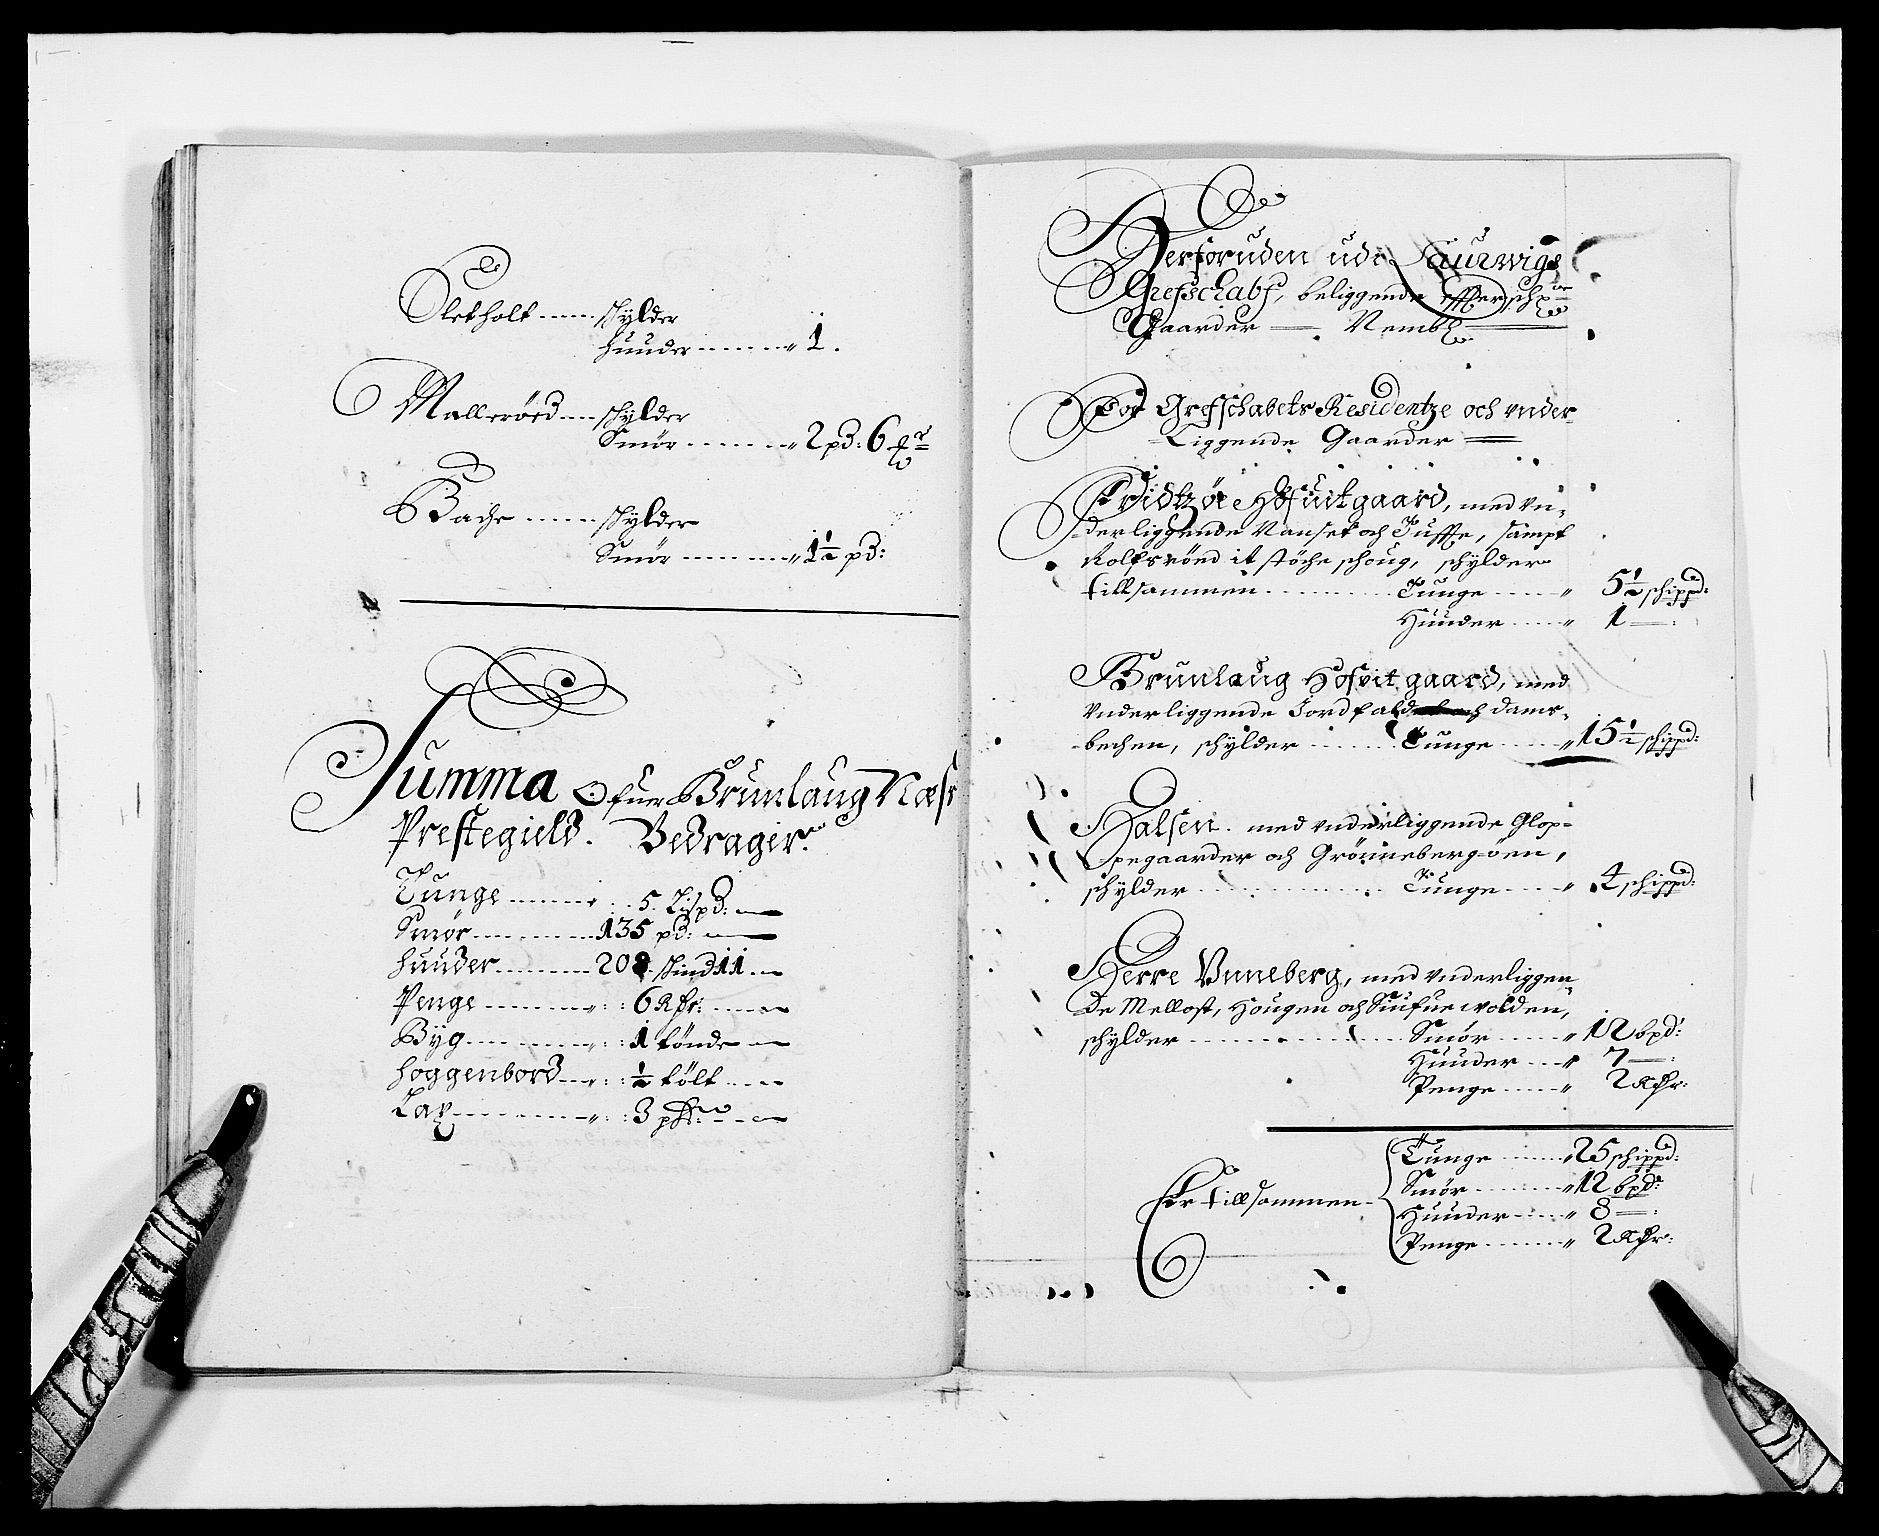 Sletholt ...... schylder
huuder ........ „ 1.
Malleröed .... schylder
Smör ......... „ 2 pd: 6
Bache ....... schylder
Smör ......... „ 1½ pd:
Summa Ofuer Brunlaug Næss
Prestegield. Bedrager:
Tunge ........ „ : : 5 Lispd: —
Smör .......... 135 pd: —
huuder ......... 208 skind 11 —
Penge ......... „ : : 6 Rdr: —
Byg .......... „ : : 1 tönde —
hoggenbord ... „ : : ½ tölt —
Lax .......... „ : : 3 —
Herforuden udi Laurwigs
Grefschabs, beliggende effterschr:
Gaarder — Nembl:
For Grefschabets Residentze och vnder-
Liggende Gaarder —
Fridtzöe Hofuitgaard, med vn-
derliggende Nanset och Tuffte, sampt
Rolfsröed it støche schoug, schylder
tillsammen .......... Tunge ..... „ 5½ schippd:
Huuder ..... „ 1 — :
Brunlaug Hofvit gaard, med
vnderliggende Jordfald och Dams-
bechen, schylder ........ Tunge ..... „ 15½ schippd:
Halsen. med vnderliggende Glop-
pegaarder och Grönneberg-öen,
schylder ............ Tunge .... „ 4 schippd:
Herre Vnneberg, med vnderliggen-
de Mellost, Hougen och wolden,
schylder ............ Smör ..... „ 12 bpd:
Huuder .... „ 7 — :
Penge ..... „ 2 Rdr:
Er tillsammen -
Tunge ....... „ 25 schippd:
Smör ........ „ 12 bpd:
Huuder ...... „ 8 — :
Penge ....... „ 2 Rdr: